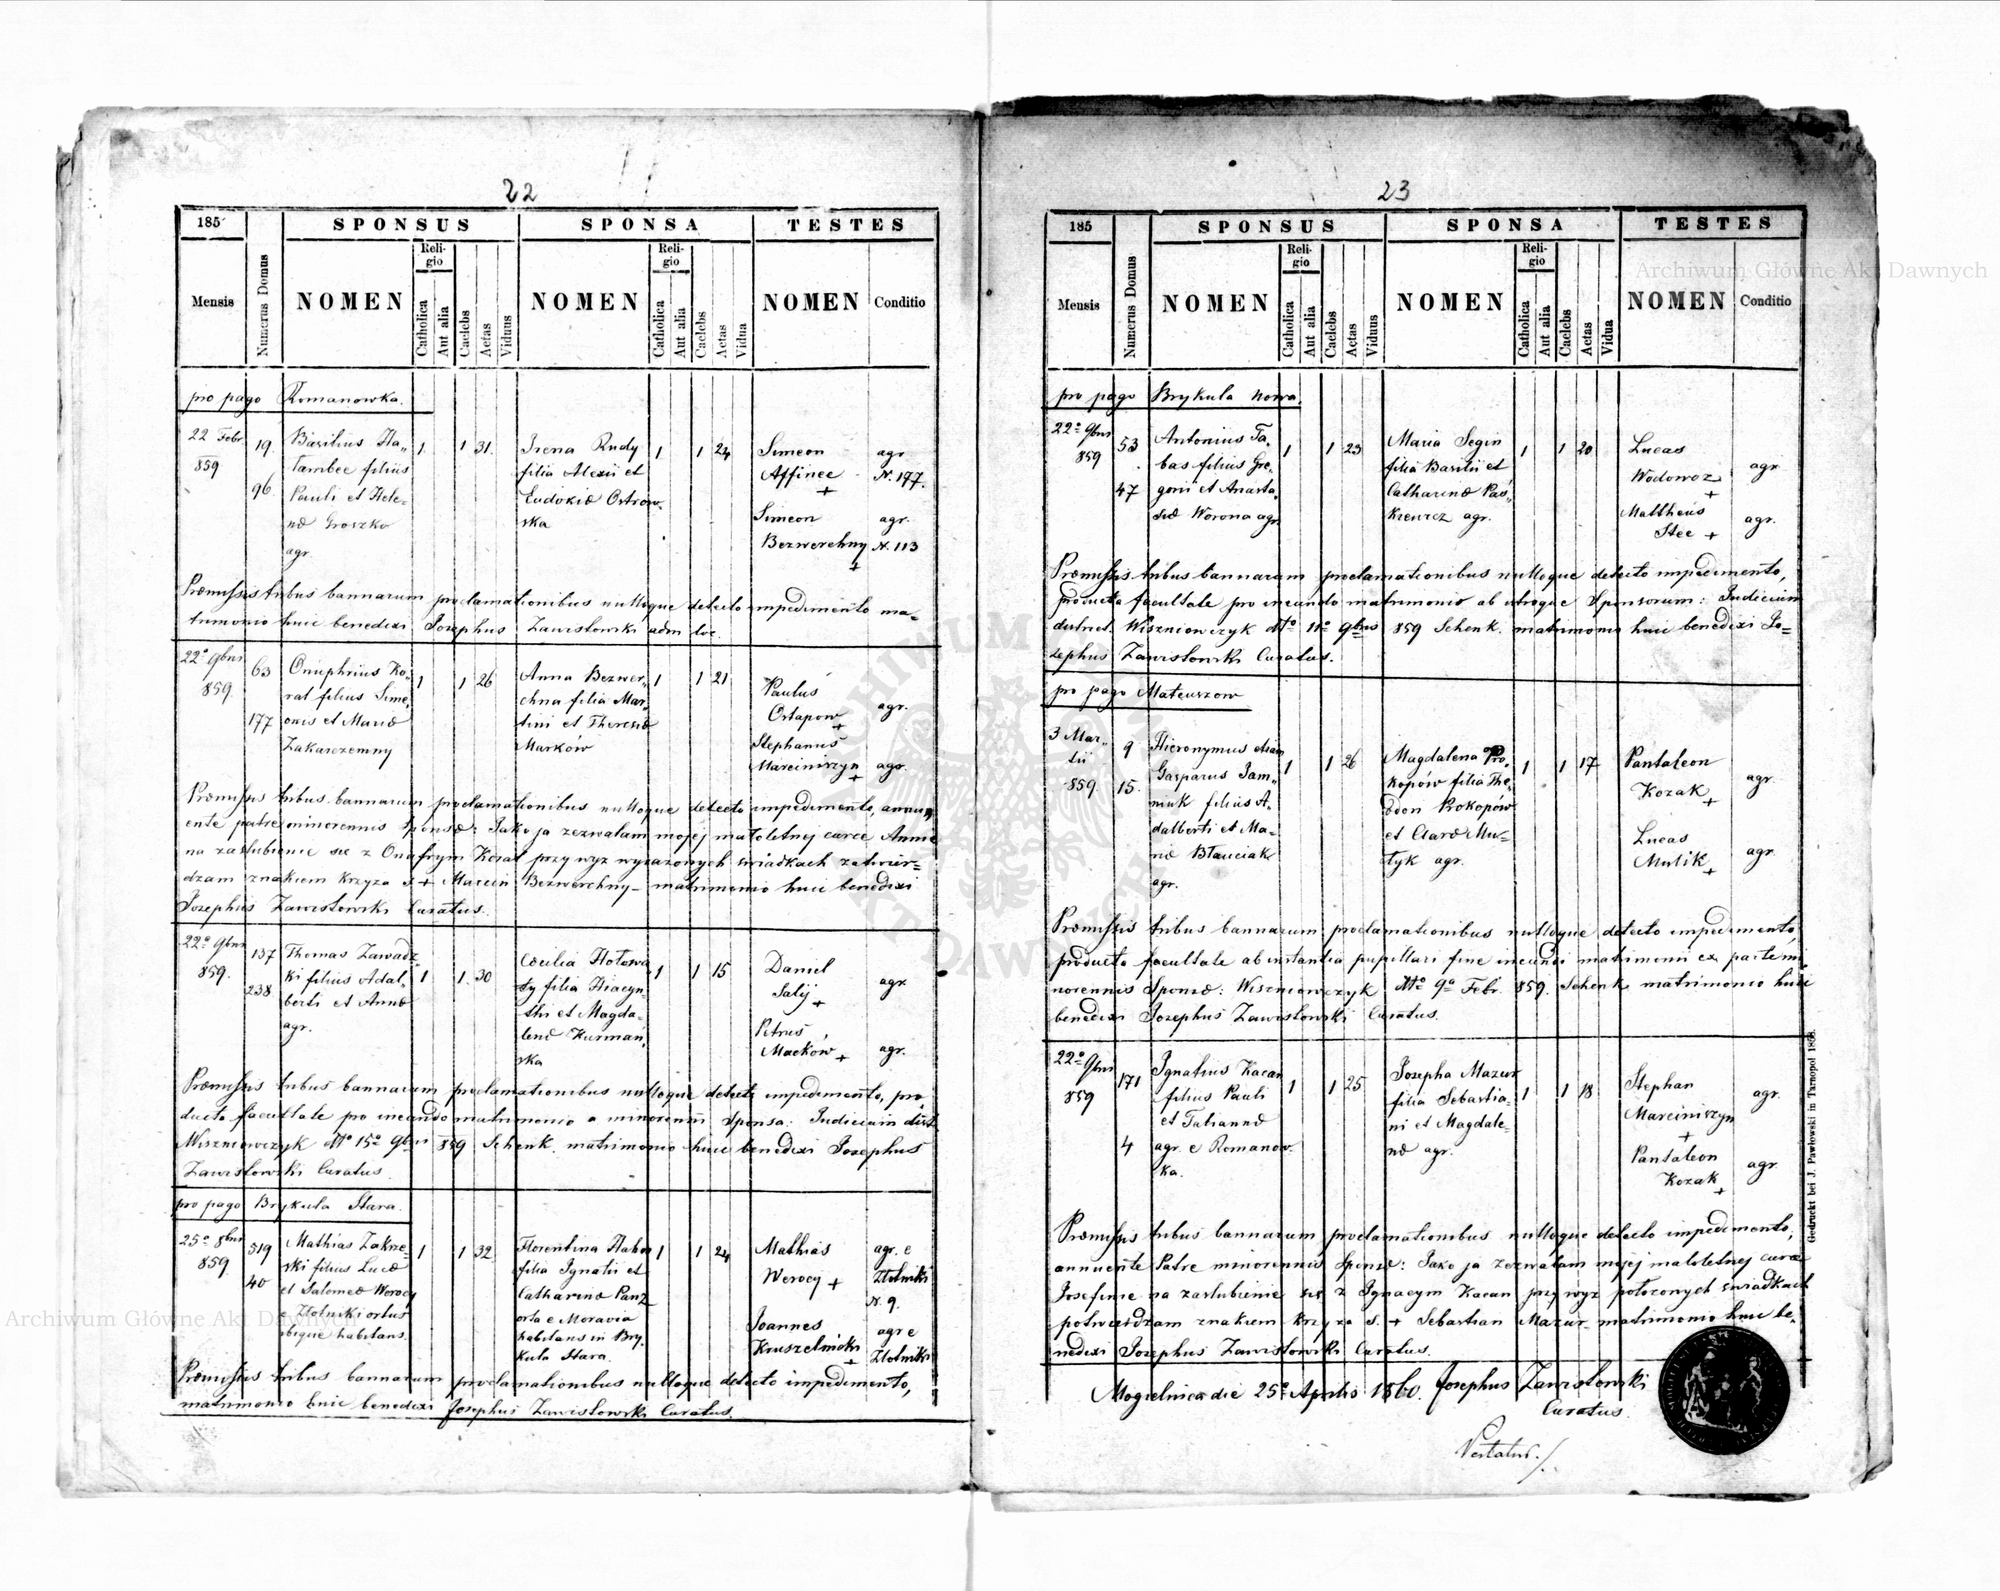 22
185
SPONSUS
SPONSA
TESTES
Mensis
Numerus Domus
NOMEN
Religio
Catholica
Aut alia
Caelebs
Aetas
Viduus
NOMEN
Religio
Catholica
Aut alia
Caelebs
Aetas
Vidua
NOMEN
Conditio
pro pago Romanowka.
22 Febr. 859
19. 96
Basilius Ha-
Tambec filius
Pauli et Hele-
næ Groszko
agr.
1 1 31.
Irena Rudy
filia Alexii et
Eudokiæ Ostrow-
ska
1 1 24
Simeon
Affinee +
agr. N. 177.
Simeon
Bezwerchny +
agr. N. 113
Præmissis tribus bannarum proclamationibus nulloque detecto impedimento ma-
trimonio huic benedixi Josephus Zawisłowski adm loc.
22º 9bris 859.
63 177
Onuphrius Ko-
rat filius Sime-
onis et Mariæ
Zakarczemny
1 1 26
Anna Bezwer-
chna filia Mar-
tini et Theresiæ
Marków
1 1 21
Paulus
Ostapow +
agr.
Stephanus
Marciniszyn +
agr.
Præmissis tribus bannarum proclamationibus nulloque detecto impedimento, annu-
ente patre minorennis Sponsæ: Jako ja zezwalam mojej małoletnej córce Annie
na zaślubienie się z Onufrym Korat przy wyz wyrażonych świadkach zatwier-
dzam znakiem krzyża s. + Marcin Bezwerchny - matrimonio huic benedixi
Josephus Zawisłowski Curatus.
22º 9bris 859.
137 238
Thomas Zawadz-
ki filius Adal-
berti et Annæ
agr.
1 1 30
Cæcilia Hołowa-
ty filia Hiacyn-
thi et Magda-
lenæ Kurman-
ska
1 1 15
Daniel
Salij +
agr.
Petrus
Maćków +
agr.
Præmissis tribus bannarum proclamationibus nulloque detecto impedimento, pro-
ducta facultate pro ineundo matrimonio a minorenni Sponsa: Judicium distr.
Wiszniowczyk dtto 15º 9bris 859 Schenk. matrimonio huic benedixi Josephus
Zawisłowski Curatus
pro pago Brykula Stara.
25º 8bris 859.
519 40
Mathias Zakrze-
ski filius Lucæ
et Salomeæ Werocy
e Złotniki ortus
ibique habitans.
1 1 32
Florentina Habon
filia Ignatii et
Catharinæ Panz
orta e Moravia
habitans in Bry-
kula Stara.
1 1 24
Mathias
Werocy +
agr. e
Złotniki
N. 9.
Joannes
Kruszelnicki +
agr e
Złotniki
Præmissis tribus bannarum proclamationibus nulloque detecto impedimento,
matrimonio huic benedixi Josephus Zawisłowski Curatus.
23
185
SPONSUS
SPONSA
TESTES
Mensis
Numerus Domus
NOMEN
Religio
Catholica
Aut alia
Caelebs
Aetas
Viduus
NOMEN
Religio
Catholica
Aut alia
Caelebs
Aetas
Vidua
NOMEN
Conditio
pro pago Brykula nowa.
22º 9bris 859
53 47
Antonius Ta-
bas filius Gre-
gorii et Anasta-
siæ Worona agr
1 1 23
Maria Segin
filia Basilii et
Catharinæ Pas-
kiewicz agr.
1 1 20
Lucas
Wodowoz +
agr
Mattheus
Stec +
agr.
Præmissis tribus bannarum proclamationibus nulloque detecto impedimento,
producta facultate pro ineundo matrimonio ab utroque Sponsorum: Judicium
district. Wiszniowczyk dtto 11º 9bris 859 Schenk. matrimonio huic benedixi Jo-
sephus Zawisłowski Curatus.
pro pago Mateuszow
3 Mar-
tii 859.
9 15.
Hieronymus
Gasparus Jam-
niuk filius A-
dalberti et Ma-
riæ Błauciak
agr.
1 1 26
Magdalena Pro-
kopów filia The-
odori Prokopów
et Claræ Mu-
łyk agr.
1 1 17
Pantaleon
Kozak +
agr.
Lucas
Mulik +
agr
Præmissis tribus bannarum proclamationibus nulloque detecto impedimento,
producta facultate ab instantia pupillari fine ineundi matrimonii ex parte mi-
norennis Sponsæ: Wiszniowczyk dtto 9º Febr. 859. Schenk matrimonio huic
benedixi Josephus Zawisłowski Curatus.
22º 9bris 859
171 4
Ignatius Kacan
filius Pauli
et Tatiannæ
agr e Romanow-
ka.
1 1 25
Josepha Mazur
filia Sebastia-
ni et Magdale-
næ agr.
1 1 18
Stephan
Marciniszyn +
agr.
Pantaleon
Kozak +
agr
Præmissis tribus bannarum proclamationibus nulloque detecto impedimento,
annuente Patre minorennis Sponsæ: Jako ja zezwalam mojej małoletnej córce
Josefinie na zaślubienie się z Ignacym Kacan przy wyz położonych świadkach
potwierdzam znakiem krzyża s. + Sebastian Mazur matrimonio huic be-
nedixi Josephus Zawisłowski Curatus.
Mogielnica die 25º Aprilis 1860. Josephus Zawisłowski
Curatus.
Gedruckt bei J. Pawłowski in Tarnopol 1858.
Archiwum Główne Akt Dawnych
Archiwum Główne Akt Dawnych
ARCHIWUM
AKT DAWNYCH